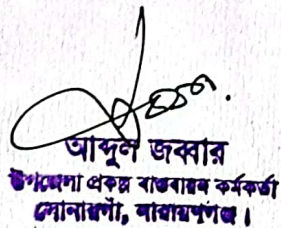 আব্দুল জব্বার
উপজেলা প্রকল্প বাস্তবায়ন কর্মকর্তা
সোনারগাঁ, নারায়ণগঞ্জ।